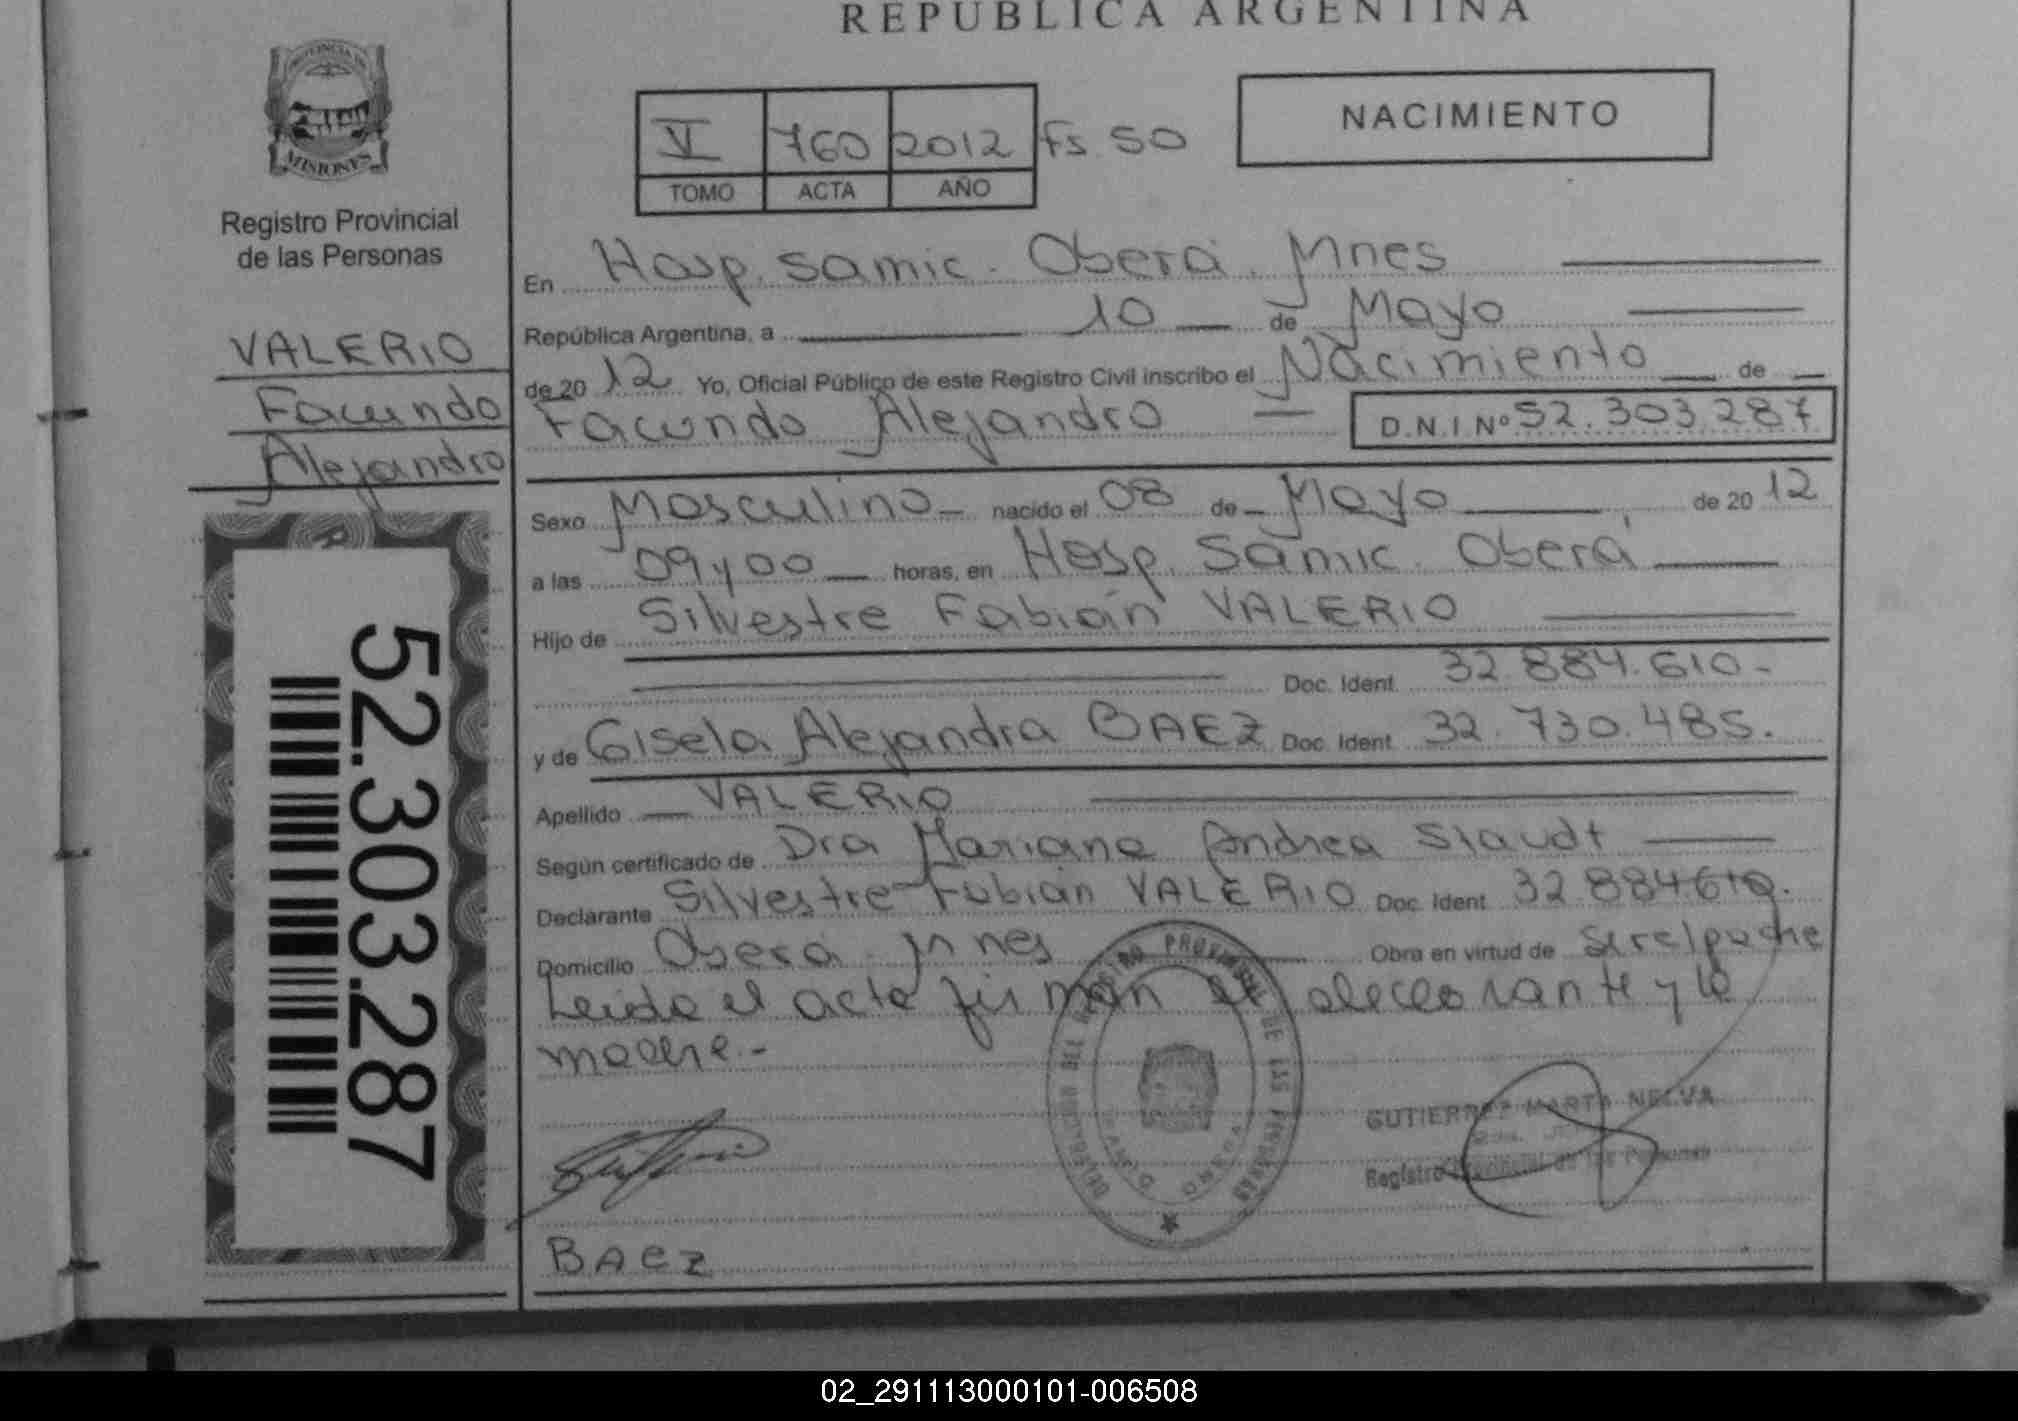 REPUBLICA ARGENTINA
PROVINCIA DE
MISIONES
Registro Provincial
de las Personas
VALERIO
Facundo
Alejandro
52.303.287
V 760 2012 Fs. 50
TOMO ACTA AÑO
NACIMIENTO
En Hosp. Samic. Oberá. Mnes
República Argentina, a 10 de Mayo
de 20 12 Yo, Oficial Público de este Registro Civil inscribo el Nacimiento de
Facundo Alejandro D.N.I. Nº 52.303.287
Sexo Masculino nacido el 08 de Mayo de 20 12
a las 09y00 horas, en Hosp. Samic. Oberá
Hijo de Silvestre Fabián VALERIO
Doc. Ident. 32.884.610.-
y de Gisela Alejandra BAEZ Doc. Ident. 32.730.485.
Apellido VALERIO
Según certificado de Dra Mariana Andrea Staudt
Declarante Silvestre Fabián VALERIO Doc. Ident. 32.884.610.
Domicilio Oberá Mnes Obra en virtud de
Leida el acta firman el declarante y la
madre.-
DELEGACION DEL REGISTRO PROVINCIAL DE LAS PERSONAS
GUTIERREZ MARTA NELVA
Registro Provincial de las Personas
BAEZ
02_291113000101-006508